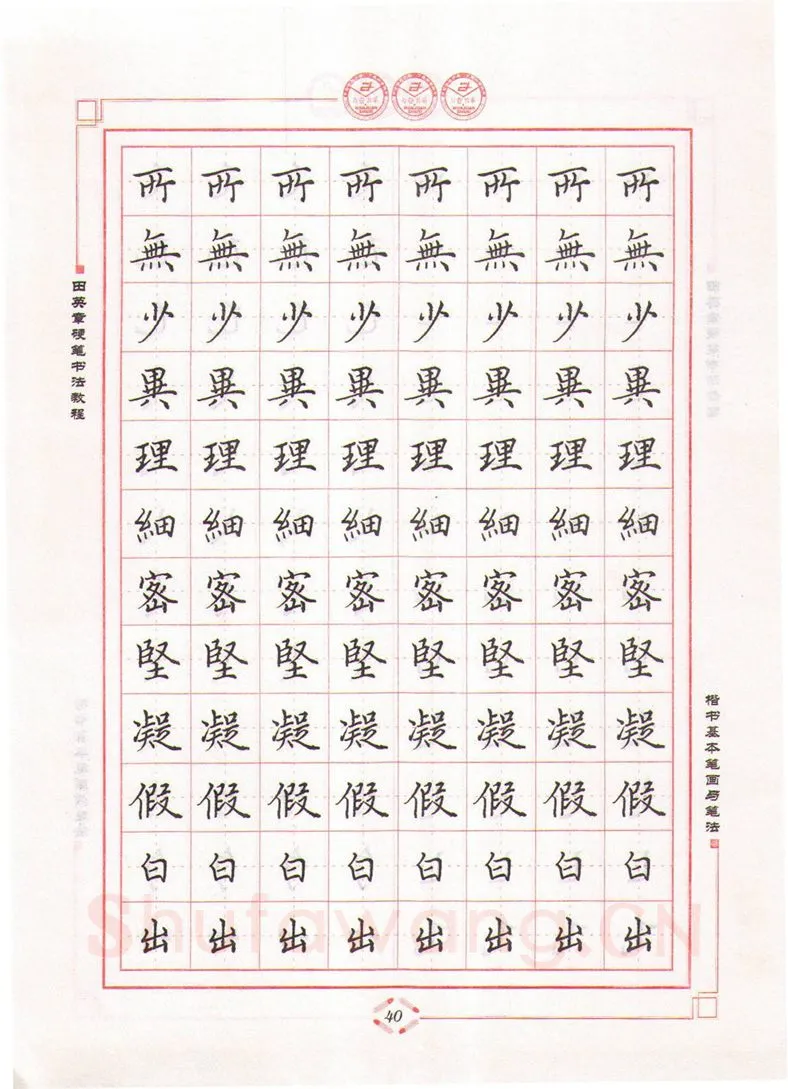 田英章硬笔书法教程
所 所 所 所 所 所 所 所
無 無 無 無 無 無 無 無
少 少 少 少 少 少 少 少
異 異 異 異 異 異 異 異
理 理 理 理 理 理 理 理
細 細 細 細 細 細 細 細
密 密 密 密 密 密 密 密
堅 堅 堅 堅 堅 堅 堅 堅
凝 凝 凝 凝 凝 凝 凝 凝
假 假 假 假 假 假 假 假
白 白 白 白 白 白 白 白
出 出 出 出 出 出 出 出
楷书基本笔画与笔法
Shufawang.CN
40